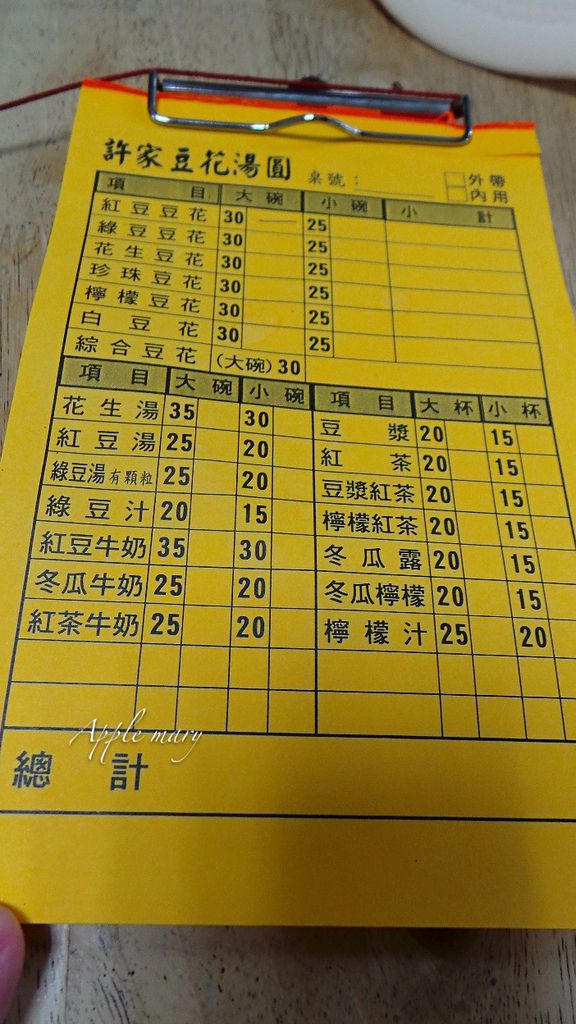 許家豆花湯圓 桌號： 外帶
內用
項目 大碗 小碗 小計
紅豆豆花 30 25
綠豆豆花 30 25
花生豆花 30 25
珍珠豆花 30 25
檸檬豆花 30 25
白豆花 30 25
綜合豆花 (大碗) 30
項目 大碗 小碗
花生湯 35 30
紅豆湯 25 20
綠豆湯有顆粒 25 20
綠豆汁 20 15
紅豆牛奶 35 30
冬瓜牛奶 25 20
紅茶牛奶 25 20
項目 大杯 小杯
豆漿 20 15
紅茶 20 15
豆漿紅茶 20 15
檸檬紅茶 20 15
冬瓜露 20 15
冬瓜檸檬 20 15
檸檬汁 25 20
Apple mary
總計